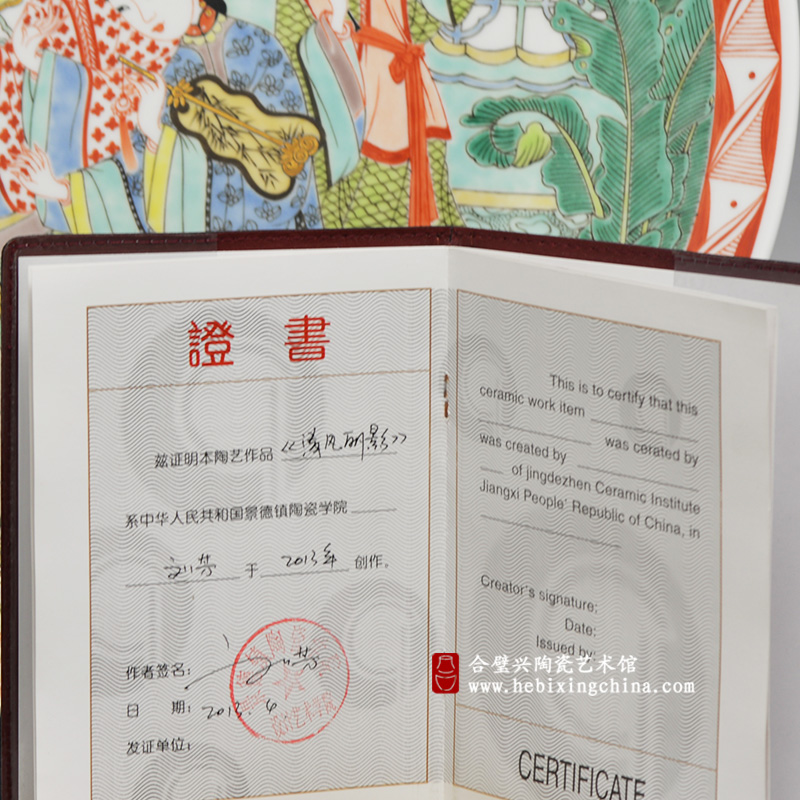 證書
兹证明本陶艺作品《清风丽影》
系中华人民共和国景德镇陶瓷学院
刘芳 于 2013年 创作。
作者签名:
日 期: 2013.4
发证单位:
This is to certify that this
ceramic work item
was cerated by
was created by
of jingdezhen Ceramic Institute
Jiangxi People' Republic of China, in
Creator's signature:
Date:
Issued by:
CERTIFICATE
合璧兴陶瓷艺术馆
www.hebixingchina.com